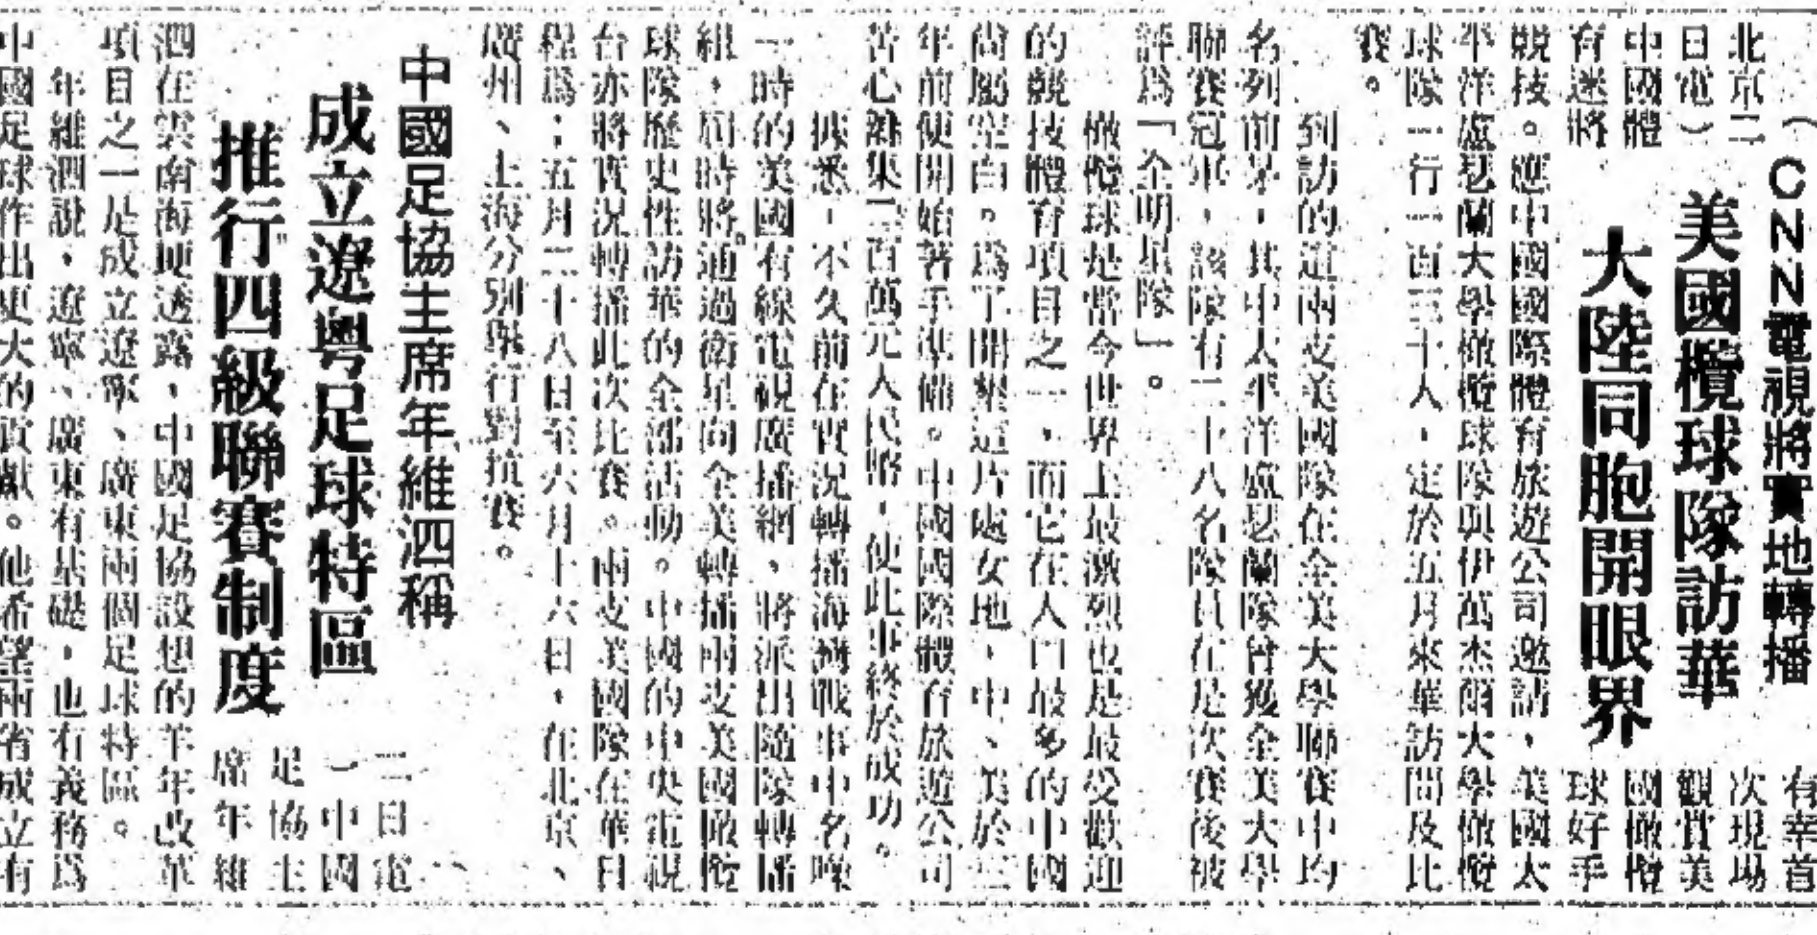 CNN電視將實地轉播
美國欖球隊訪華
大陸同胞開眼界
（
北京二
日電）
中國體
育迷將
有幸首
次現場
觀賞美
國橄欖
球好手
競技。應中國國際體育旅遊公司邀請，美國太
平洋盧瑟蘭大學橄欖球隊與伊萬杰爾大學橄欖
球隊一行一百三十人，定於五月來華訪問及比
賽。
到訪的這兩支美國隊在全美大學聯賽中均
名列前茅，其中太平洋盧瑟蘭隊曾獲全美大學
聯賽冠軍，該隊有二十八名隊員在是次賽後被
評爲「全明星隊」。
橄欖球是當今世界上最激烈也是最受歡迎
的競技體育項目之一，而它在人口最多的中國
尚屬空白。爲了開墾這片處女地，中、美於三
年前便開始著手準備。中國國際體育旅遊公司
苦心籌集二百萬元人民幣，使此事終於成功。
據悉，不久前在實況轉播海灣戰事中名噪
一時的美國有線電視廣播網，將派出隨隊轉播
組，屆時將通過衛星向全美轉播兩支美國橄欖
球隊歷史性訪華的全部活動。中國的中央電視
台亦將實況轉播此次比賽。兩支美國隊在華日
程爲：五月二十八日至六月十六日，在北京、
廣州、上海分別舉行對抗賽。
中國足協主席年維泗稱
成立遼粵足球特區
推行四級聯賽制度
二日電
）中國
足協主
席年維
泗在雲南海埂透露，中國足協設想的羊年改革
項目之一是成立遼寧、廣東兩個足球特區。
年維泗說，遼寧、廣東有基礎，也有義務爲
中國足球作出更大的貢獻。他希望兩省成立有